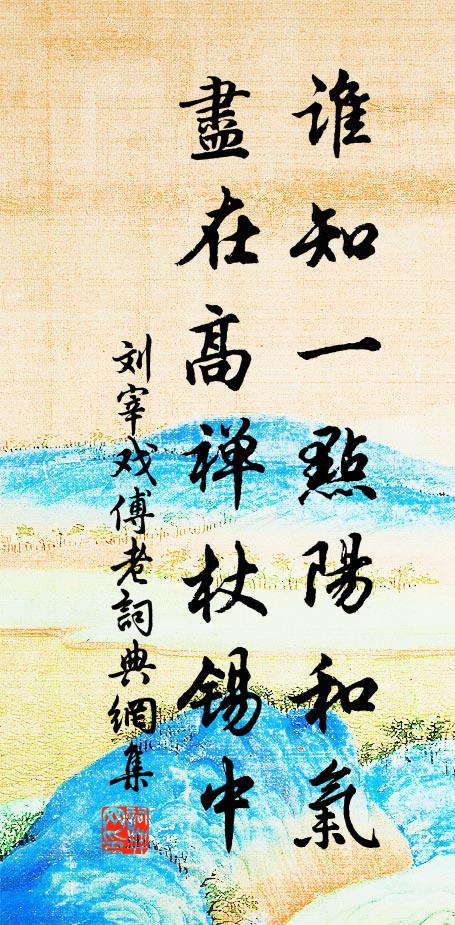 誰知一點陽和氣
盡在高禅杖锡中
刘宰戏傅老詞典網集